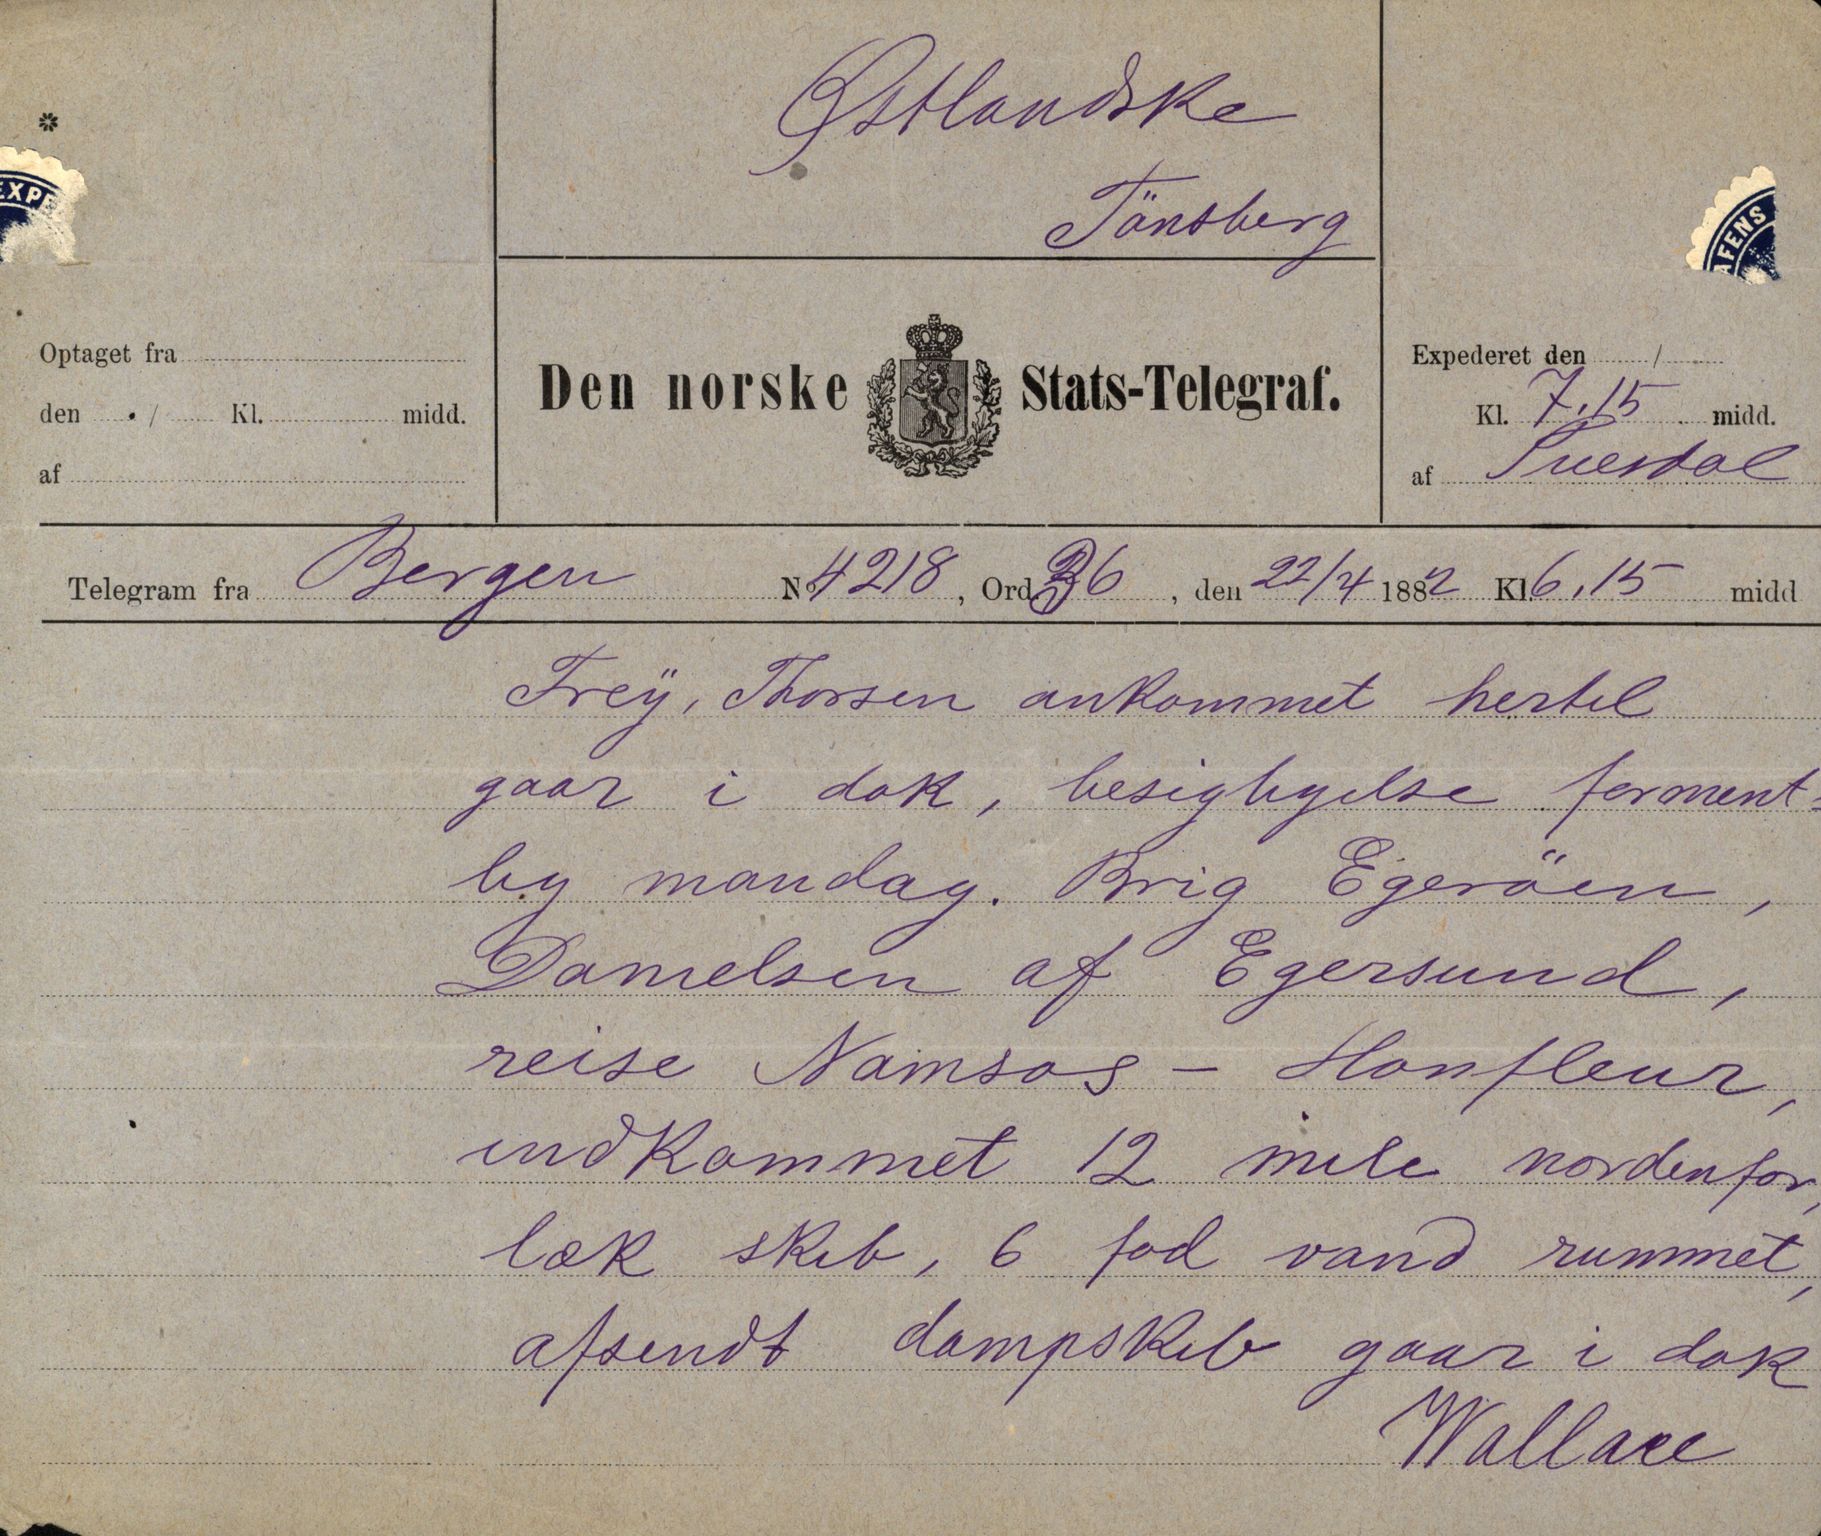 Østlandske
Tönsberg
*
EXPE
AFENS
Optaget fra
den / Kl. midd.
af
Den norske Stats-Telegraf.
Expederet den /
Kl. 7.15 midd.
af
Telegram fra Bergen No 4218, Ord 36, den 22/4 1882 Kl. 6.15 midd
Frey, Thorsen ankommet hertil
gaar i dok, besigtygelse forment=
lig mandag. Brig Egeröen,
Danielsen af Egersund,
reise Namsos - Honfleur,
indkommet 12 mile nordenfor,
læk skib, 6 fod vand rummet,
afsendt dampskib gaar i dok
Wallace